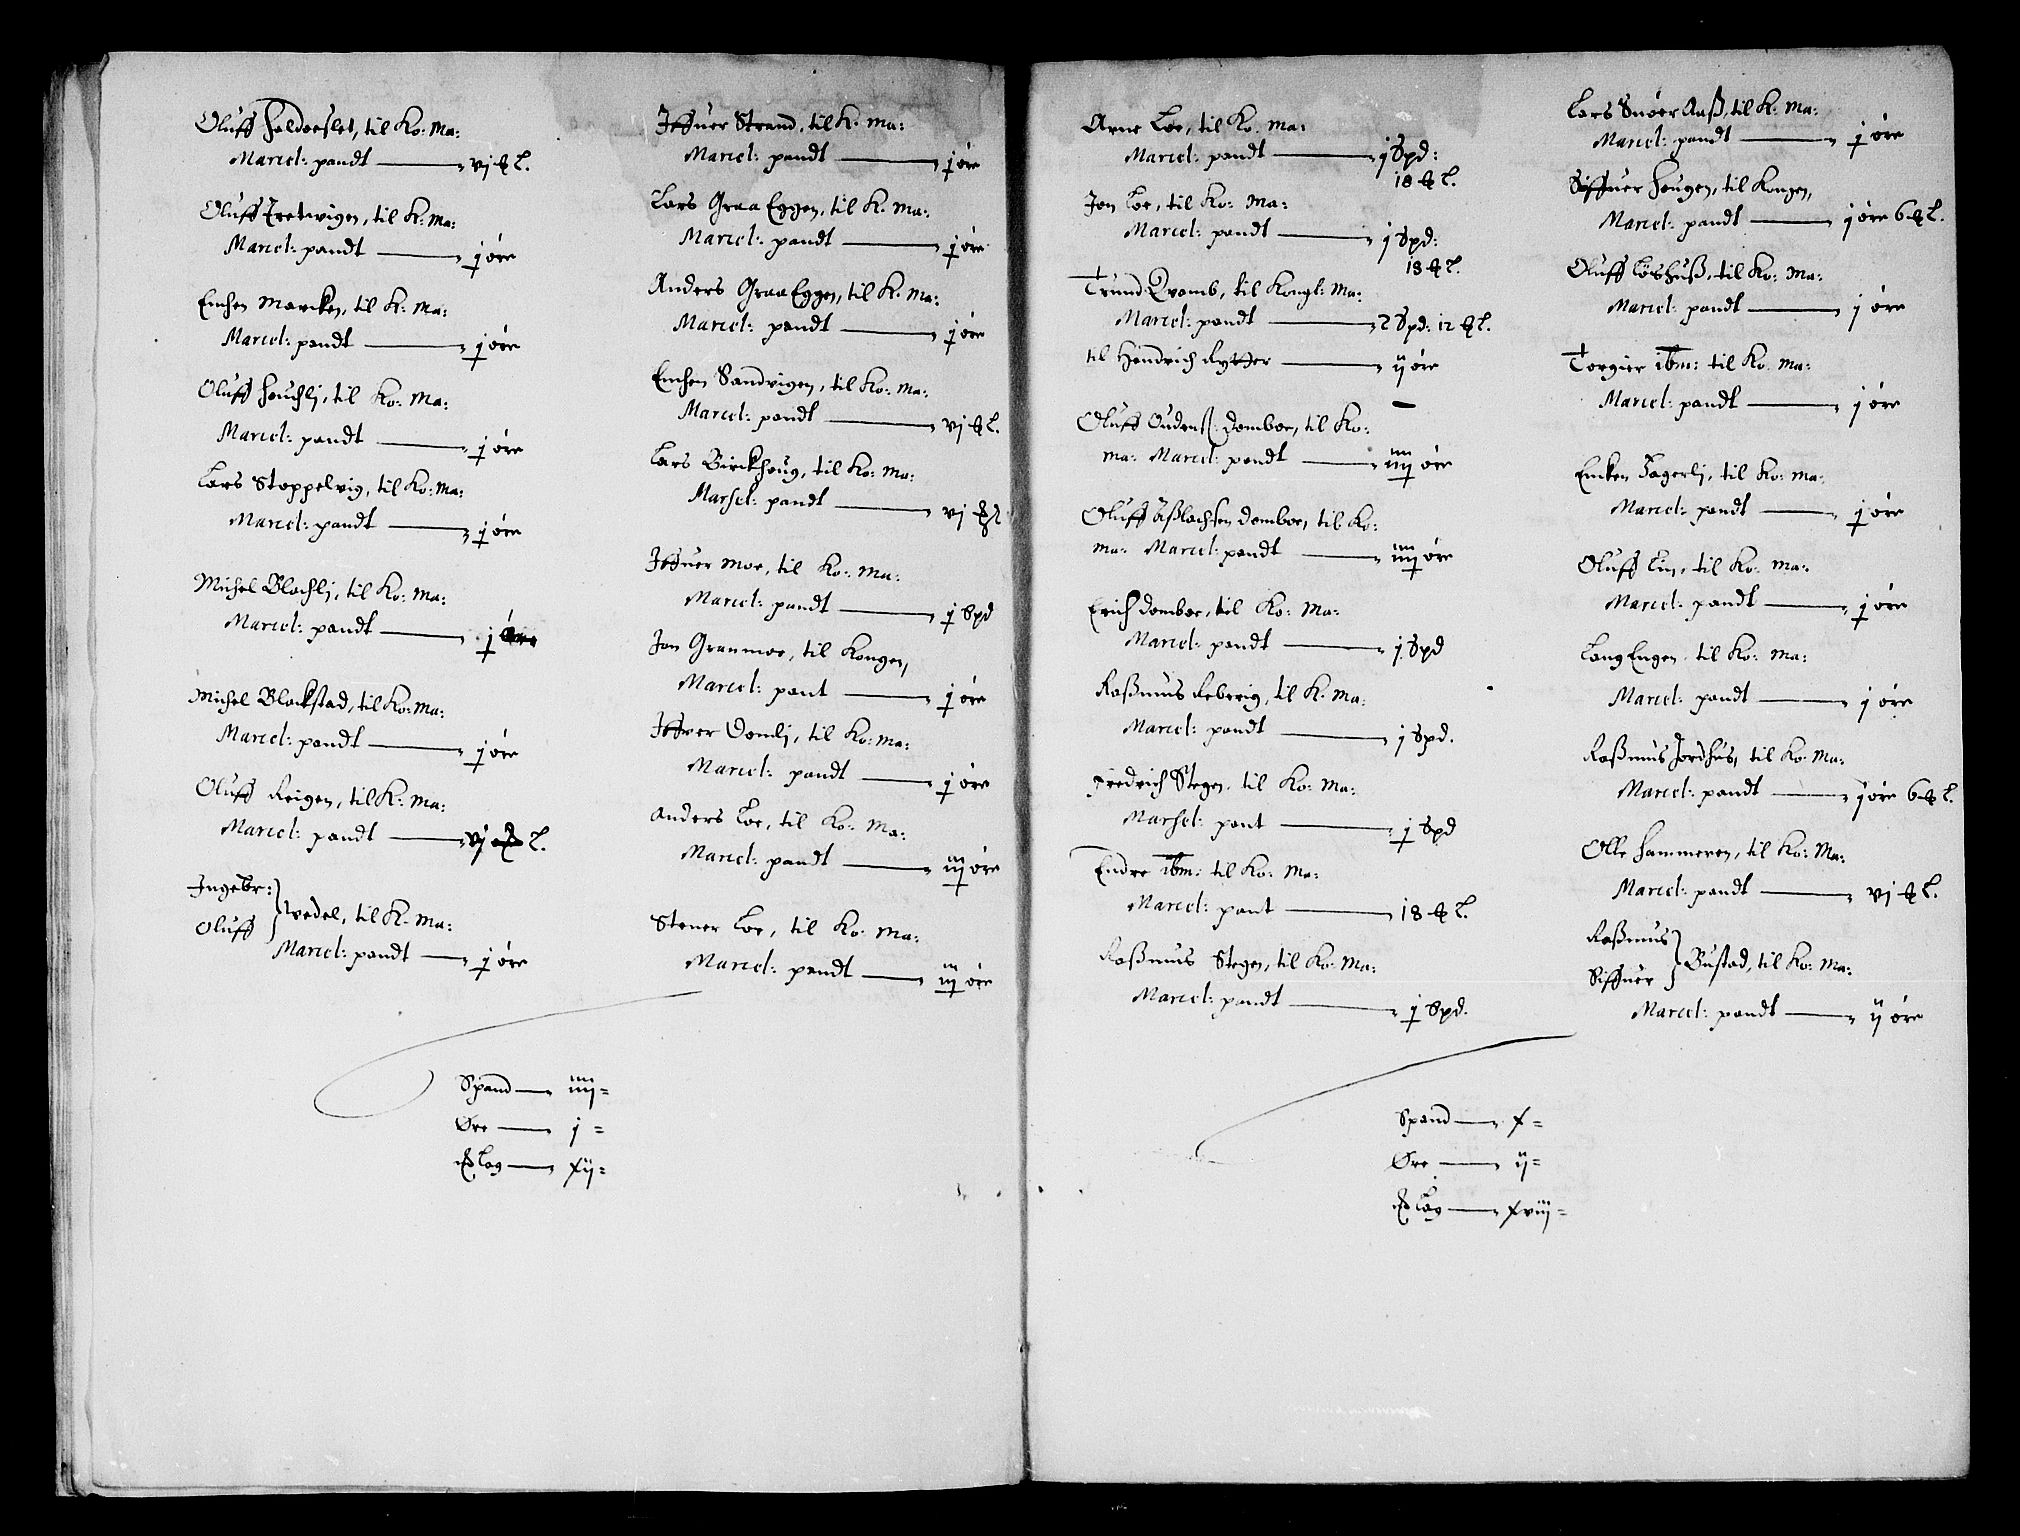 Oluff Foldeslet, til Ko: Ma:
Marcel: pandt — vj ℔ L.
Oluff Tretvigen, til K: Ma:
Marcel: pandt — j øre
Emken Marcken, til K: Ma:
Marcel: pandt — j øre
Oluff Houchlj, til Ko: Ma:
Marcel: pandt — j øre
Lars Stoppelvig, til Ko: Ma:
Marcel: pandt — j øre
Michel Blochlj, til Ko: Ma:
Marcel: pandt — j øre
Michel Blockstad, til Ko: Ma:
Marcel: pandt — j øre
Oluff Reigen, til K: Ma:
Marcel: pandt — vj ℔ L.
Ingebr:
Oluff } Wedel, til K. Ma:
Marcel: pandt — j øre
Iffuer Strand, til K. Ma:
Marcel: pandt — j øre
Lars Graa Eggen, til K. Ma:
Marcel: pandt — j øre
Anders Graa Eggen, til K. Ma:
Marcel: pandt — j øre
Emken Sandvigen, til Ko: Ma:
Marcel: pandt — vj ℔ L.
Lars Birckhoug, til Ko: Ma:
Marsel: pandt — vj ℔ L
Iffuer Moe, til Ko: Ma:
Marcel: pandt — j Spd
Jon Granmoe, til Kongen,
Marcel: pant — j øre
Iffver Domlj, til Ko: Ma:
Marcel: pandt — j øre
Anders Loe, til Ko: Ma:
Marcel: pandt — iij øre
Stener Loe, til Ko: Ma:
Marcel: pandt — iij øre
Spand — iiij =
Øre — j =
℔ Lag — xij =
Arne Loe, til Ko: Ma:
Marcel: pandt — j Spd:
18 ℔ L.
Jon Loe, til Ko: Ma:
Marcel: pandt — j Spd:
18 ℔ L.
Trund Qvamb, til Kongl: Ma:
Marcel: pandt — 2 Spd: 12 ℔ L.
til Hendrich Rytter — ij øre
Oluff Oudenß: Domboe, til Ko:
Ma: Marcel: pandt — iiij øre
Oluff Aßlachsen Domboe, til Ko:
Ma: Marcel: pandt — iiij øre
Erich Domboe, til Ko: Ma:
Marcel: pandt — j Spd
Raßmus Reberig, til K. Ma:
Marcel: pandt — j Spd.
Fredrich Stegen, til Ko: Ma:
Marsel: pant — j Spd
Endre ibm: til Ko: Ma:
Marcel: pant — 18 ℔ L.
Raßmus Stegen, til Ko: Ma:
Marcel: pandt — j Spd.
Lars Snøer Aaß, til K: Ma:
Marcel: pandt — j øre
Siffuer Hougen, til Kongen,
Marcel: pandt — j øre 6 ℔ L.
Oluff Løshuß, til Ko: Ma:
Marcel: pandt — j øre
Torgier ibm: til Ko: Ma:
Marcel: pandt — j øre
Emken Fagerlj, til Ko: Ma:
Marcel: pandt — j øre
Oluff Lin, til Ko: Ma:
Marcel: pandt — j øre
Lang Engen til Ko: Ma:
Marcel: pandt — j øre
Raßmus Jordhus, til Ko: Ma:
Marcel: pandt — j øre 6 ℔ L.
Olle Hammeren, til Ko: Ma:
Marcel: pandt — vj ℔ L.
Raßmus
Siffuer } Bustad, til Ko: Ma:
Marcel: pandt — ij øre
Spand — x =
Øre — ij =
℔ Lag — xviij =